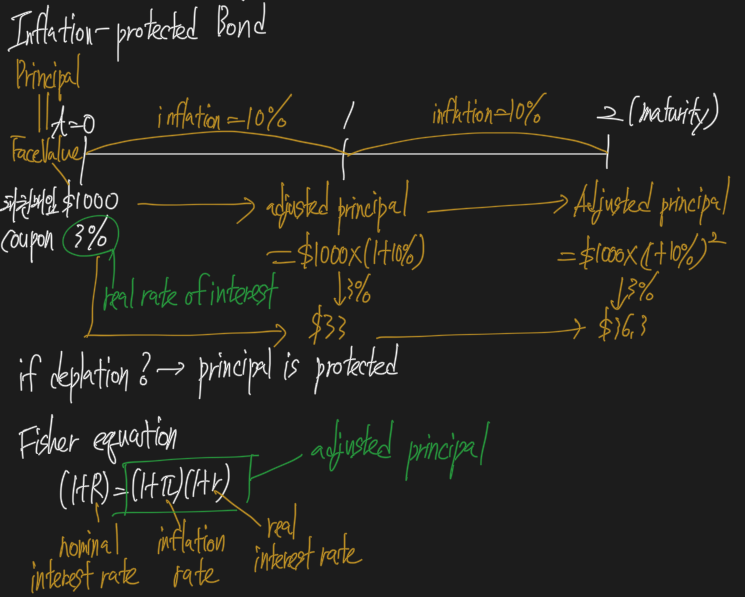 Inflation-protected Bond
Principal
||
t=0
inflation=10%
1
inflation=10%
2 (maturity)
FaceValue
$1000
adjusted principal
Adjusted principal
coupon 3%
=$1000×(1+10%)
=$1000×(1+10%)²
real rate of interest
↓3%
↓3%
$33
$36.3
if deplation? → principal is protected
Fisher equation
adjusted principal
(1+R)=(1+π)(1+r)
nominal
interest rate
inflation
rate
real
interest rate